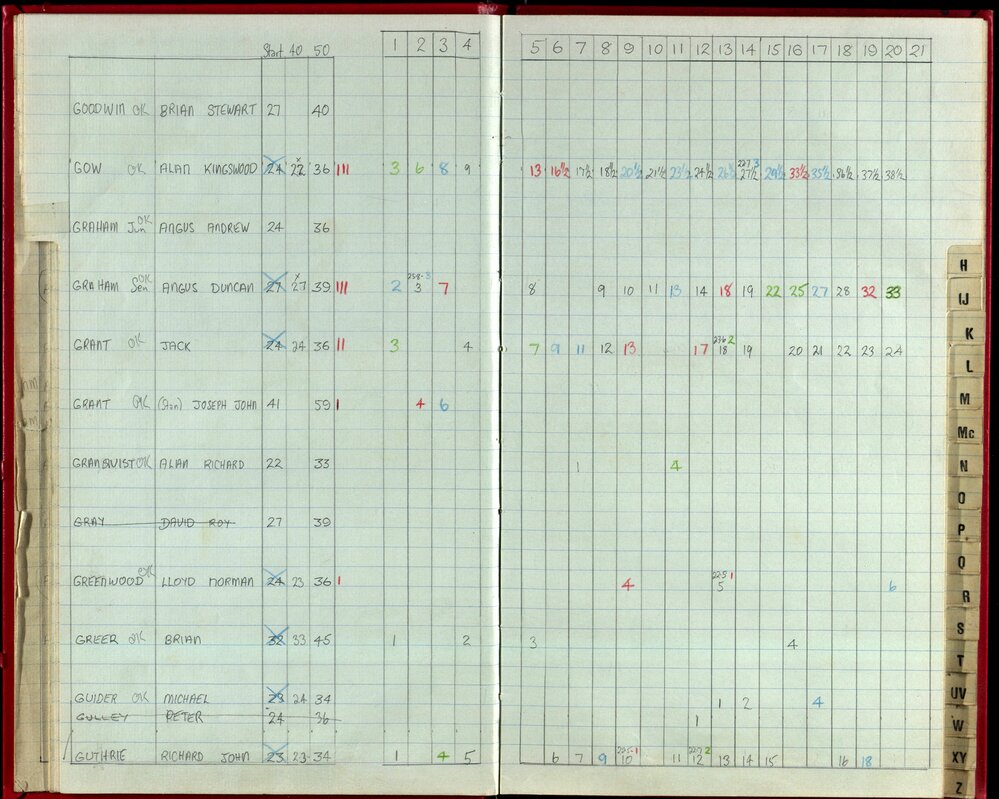 Start 40 50 1 2 3 4 5 6 7 8 9 10 11 12 13 14 15 16 17 18 19 20 21
GOODWIN OK BRIAN STEWART 27 40
GOW OK ALAN KINGSWOOD 24 22 36 III 3 6 8 9 13 16½ 17½ 18½ 20½ 21½ 23½ 24½ 26½ 227 3 27½ 29½ 33½ 35½ 36½ 37½ 38½
GRAHAM Jun OK ANGUS ANDREW 24 36
GRAHAM Sen OK ANGUS DUNCAN 27 27 39 III 2 258 3 3 7 8 9 10 11 13 14 18 19 22 25 27 28 32 33
GRANT OK JACK 24 24 36 II 3 4 7 9 11 12 13 17 236 2 18 19 20 21 22 23 24
GRANT OK (Stan) JOSEPH JOHN 41 59 I 4 6
GRANQUIST OK ALAN RICHARD 22 33 1 4
GRAY DAVID ROY 27 39
GREENWOOD OK LLOYD NORMAN 24 23 36 I 4 225 1 5 6
GREER OK BRIAN 32 33 45 1 2 3 4
GUIDER OK MICHAEL 23 24 34 1 2 4
GULLEY PETER 24 36 1
GUTHRIE RICHARD JOHN 23 23 34 1 4 5 6 7 9 225 1 10 11 227 2 12 13 14 15 16 18
H
IJ
K
L
M
Mc
N
O
P
Q
R
S
T
UV
W
XY
Z